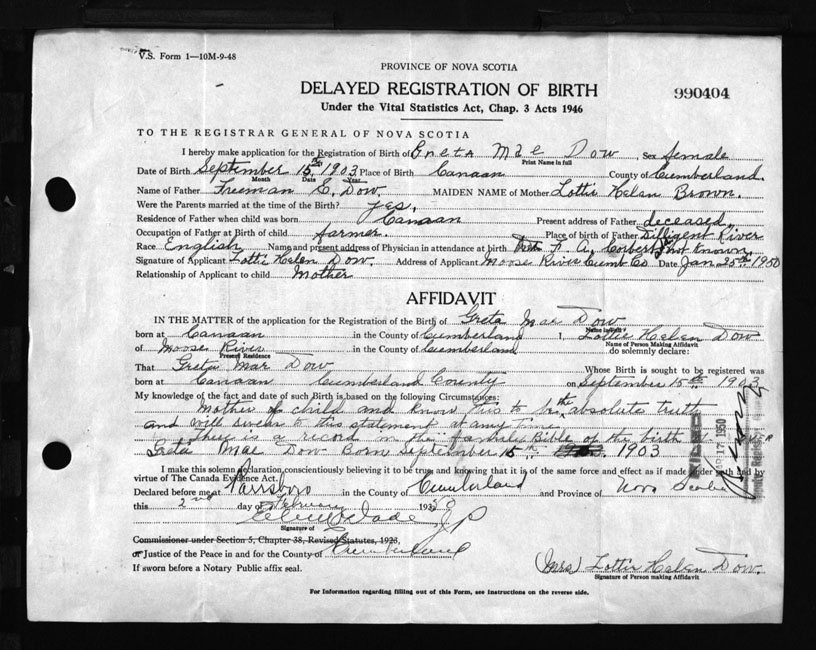 V.S. Form 1—10M-9-48
PROVINCE OF NOVA SCOTIA
DELAYED REGISTRATION OF BIRTH
990404
Under the Vital Statistics Act, Chap. 3 Acts 1946
TO THE REGISTRAR GENERAL OF NOVA SCOTIA
I hereby make application for the Registration of Birth of Greta Mae Dow, Sex female
Print Name in full
Date of Birth September 15th, 1903 Place of Birth Canaan County of Cumberland.
Month Date Year
Name of Father Freeman C. Dow. MAIDEN NAME of Mother Lottie Helen Brown.
Were the Parents married at the time of the Birth? yes.
Residence of Father when child was born Canaan Present address of Father deceased
Occupation of Father at Birth of child farmer. Place of birth of Father Diligent River
Race English Name and present address of Physician in attendance at birth A. Corbert not known.
Signature of Applicant Lottie Helen Dow. Address of Applicant Moose River Cumb Co Date Jan 25th 1950
Relationship of Applicant to child Mother
AFFIDAVIT
IN THE MATTER of the application for the Registration of the Birth of Greta Mae Dow
Name in full
born at Canaan in the County of Cumberland I, Lottie Helen Dow
Name of Person Making Affidavit
of Moose River in the County of Cumberland do solemnly declare:
Present Residence
That Greta Mae Dow Whose Birth is sought to be registered was
born at Canaan Cumberland County on September 15th 1903
My knowledge of the fact and date of such Birth is based on the following Circumstances:
Mother of child and know this to be the absolute truth
and will swear to this statement at any time.
There is a record in the family Bible of the birth of
Greta Mae Dow Born September 15th 1903
FILED
17 1950
I make this solemn declaration conscientiously believing it to be true and knowing that it is of the same force and effect as if made under oath and by
virtue of The Canada Evidence Act.
Declared before me at Parrsboro in the County of Cumberland and Province of Nova Scotia
this 2nd day of February
J P
Signature of
Commissioner under Section 5, Chapter 38, Revised Statutes, 1923,
or Justice of the Peace in and for the County of Cumberland
If sworn before a Notary Public affix seal.
(Mrs) Lottie Helen Dow.
Signature of Person making Affidavit
For Information regarding filling out of this Form, see instructions on the reverse side.